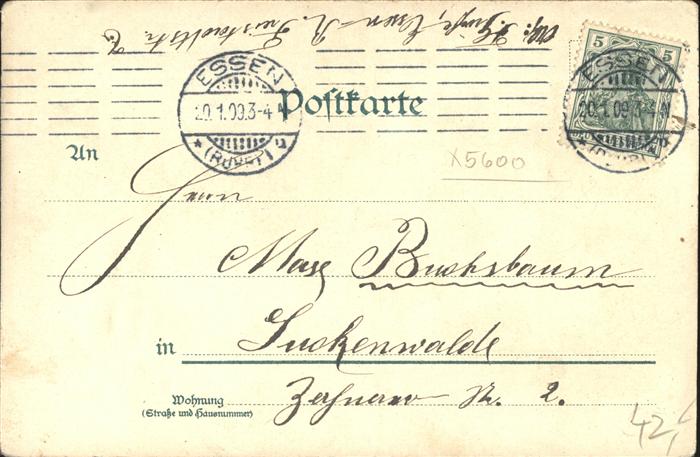 Abs: Essen-R.
5 5
ESSEN
20.1.09.3-4N
*(RUHR) b
Postkarte
ESSEN
20.1.09.3-4N
*(RUHR) b
An
X5600
Herrn
Max Buchsbaum
in Luckenwalde
Wohnung
(Straße und Hausnummer)
Str. 2.
42,-